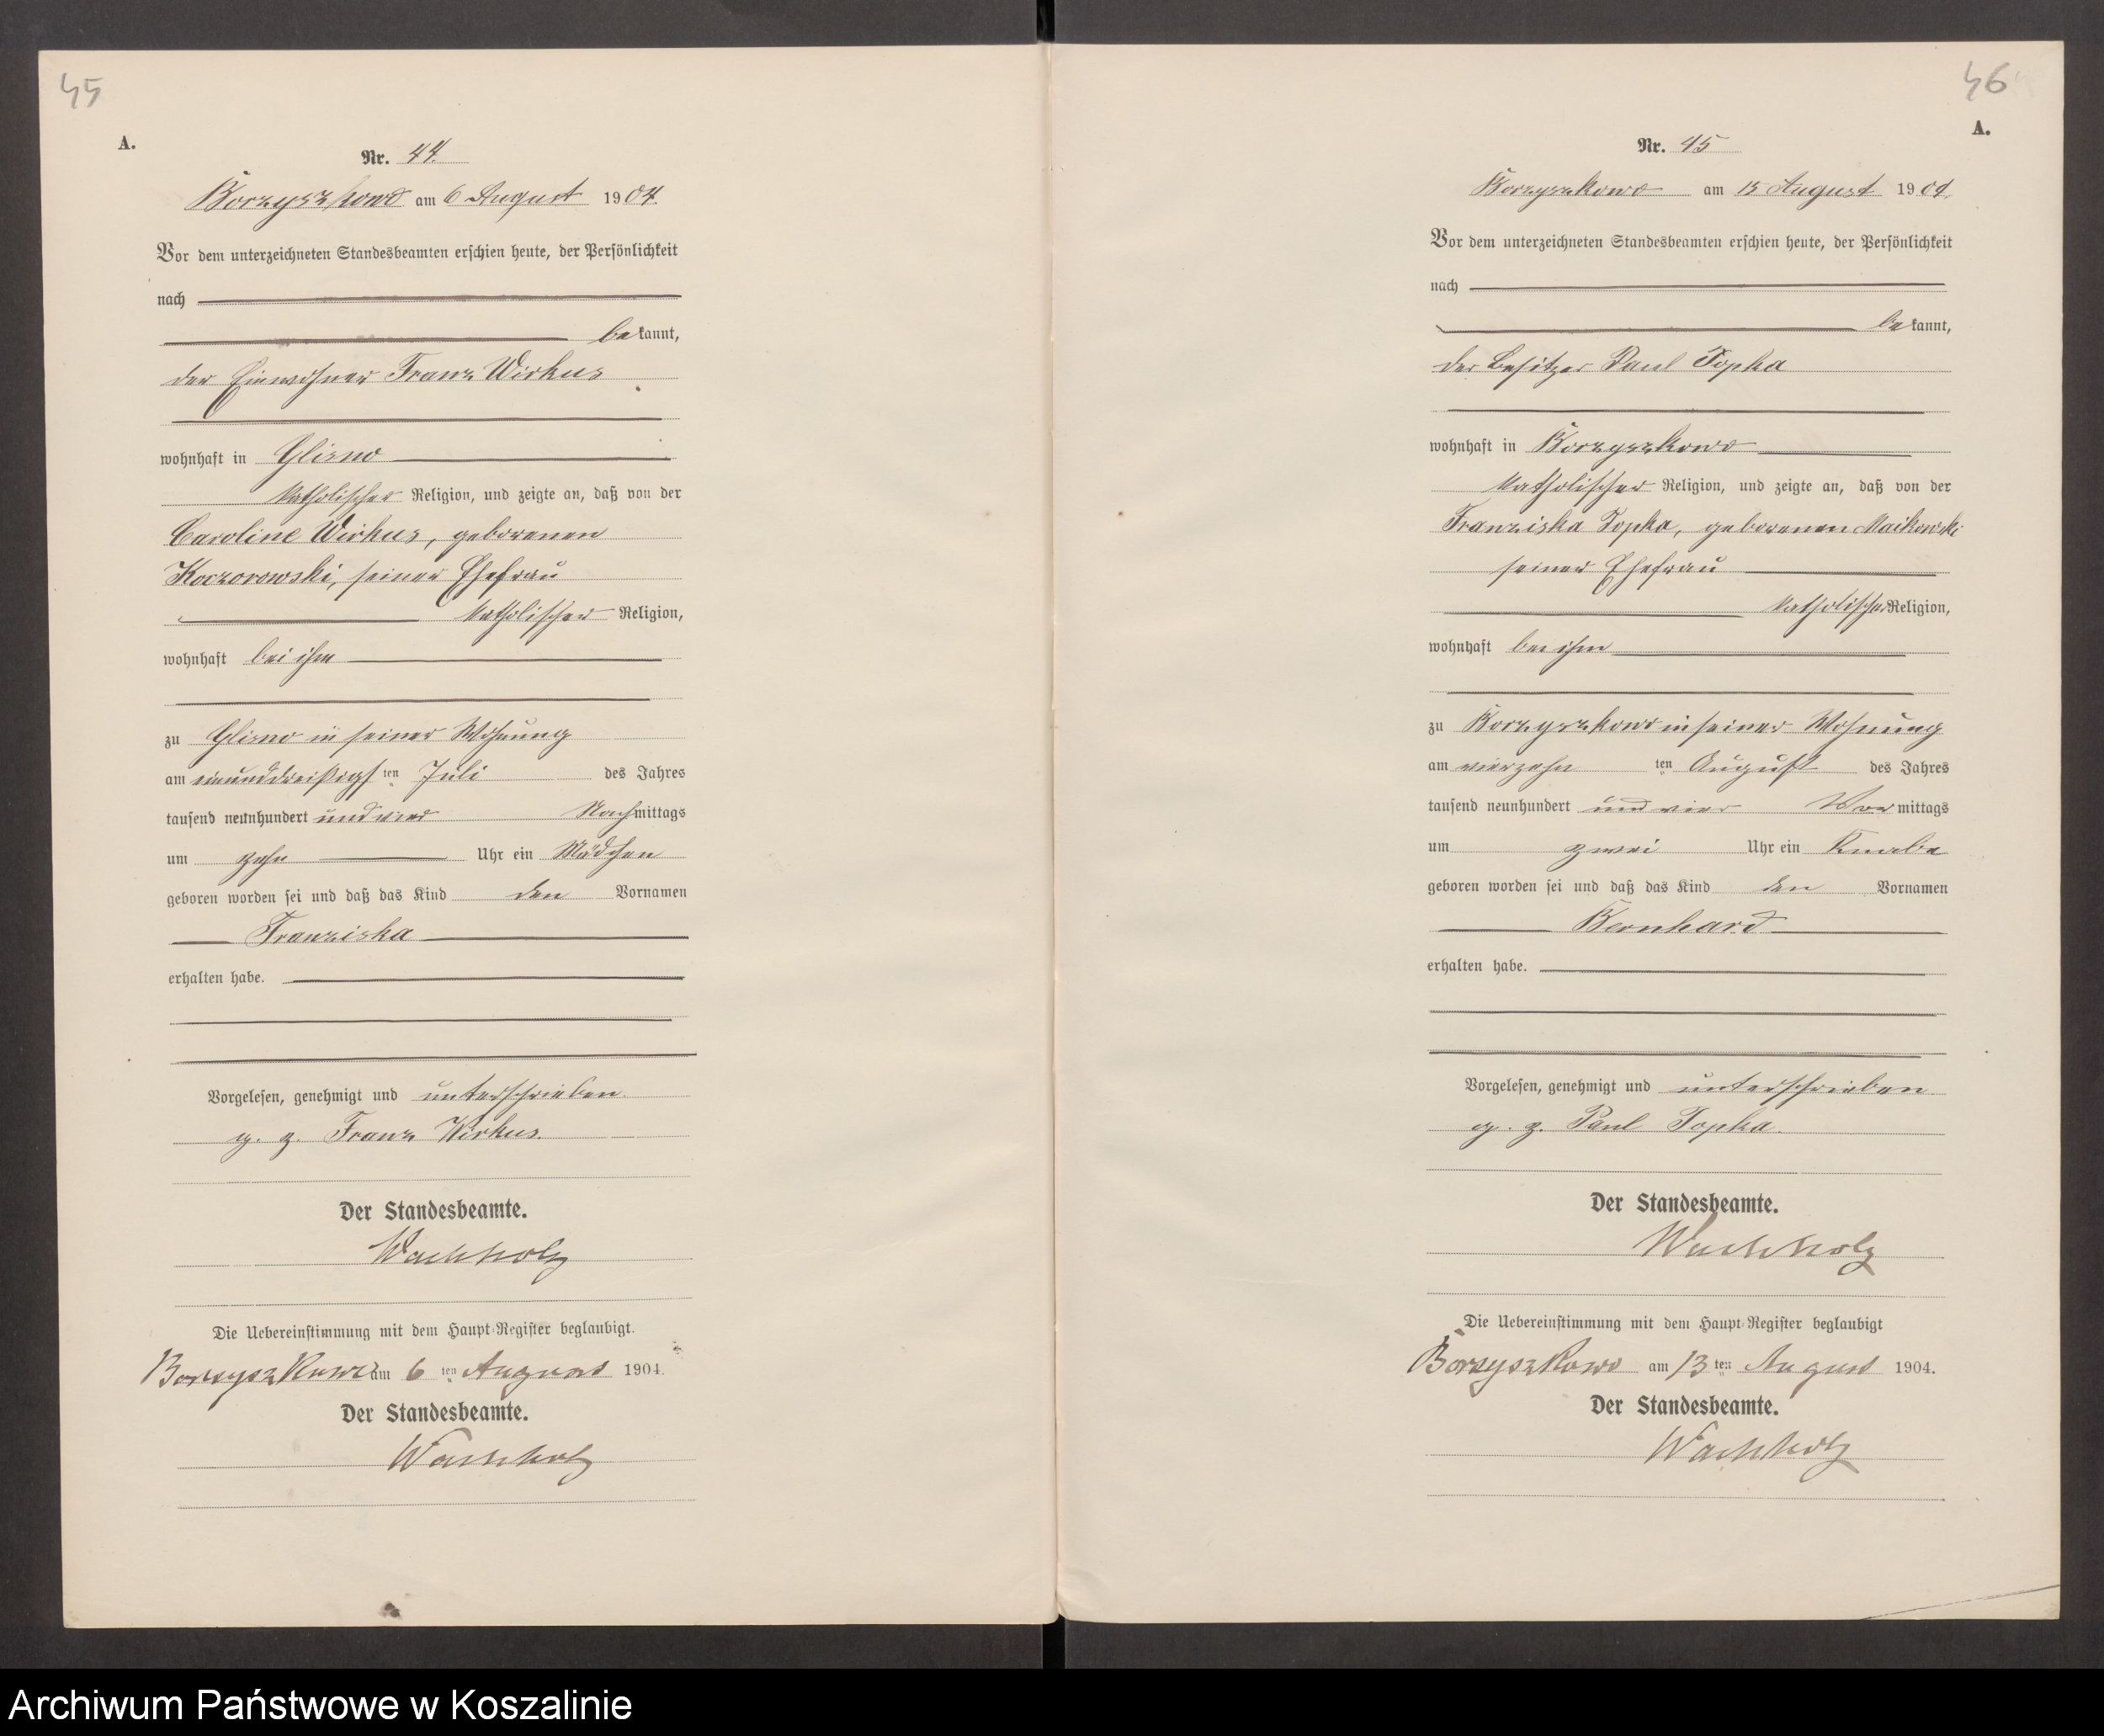 45
A.
Nr. 44.
Borzyszkowo am 6 August 1904.
Vor dem unterzeichneten Standesbeamten erschien heute, der Persönlichkeit
nach
bekannt,
der Einwohner Franz Wirkus
wohnhaft in Glisno
katholischer Religion, und zeigte an, daß von der
Caroline Wirkus, geborenen
Koczorowski, seiner Ehefrau
katholischer Religion,
wohnhaft bei ihm
zu Glisno in seiner Wohnung
am einunddreißigsten Juli des Jahres
tausend neunhundert und vier Nachmittags
um zehn Uhr ein Mädchen
geboren worden sei und daß das Kind den Vornamen
Franziska
erhalten habe.
Vorgelesen, genehmigt und unterschrieben
g. z. Franz Wirkus.
Der Standesbeamte.
Wachholz
Die Uebereinstimmung mit dem Haupt-Register beglaubigt.
Borzyszkowo am 6 ten August 1904.
Der Standesbeamte.
Wachholz
46
A.
Nr. 45
Borzyszkowo am August 1904.
Vor dem unterzeichneten Standesbeamten erschien heute, der Persönlichkeit
nach
bekannt,
der Besitzer Paul Topka
wohnhaft in Borzyszkowo
katholischer Religion, und zeigte an, daß von der
Franziska Topka, geborenen Maikowski
seiner Ehefrau
katholischer Religion,
wohnhaft bei ihm
zu Borzyszkowo in seiner Wohnung
am vierzehn ten August des Jahres
tausend neunhundert und vier Vormittags
um zwei Uhr ein Knabe
geboren worden sei und daß das Kind den Vornamen
Bernhard
erhalten habe.
Vorgelesen, genehmigt und unterschrieben
g. z. Paul Topka.
Der Standesbeamte.
Wachholz
Die Uebereinstimmung mit dem Haupt-Register beglaubigt
Borzyszkowo am ten August 1904.
Der Standesbeamte.
Wachholz
Archiwum Państwowe w Koszalinie